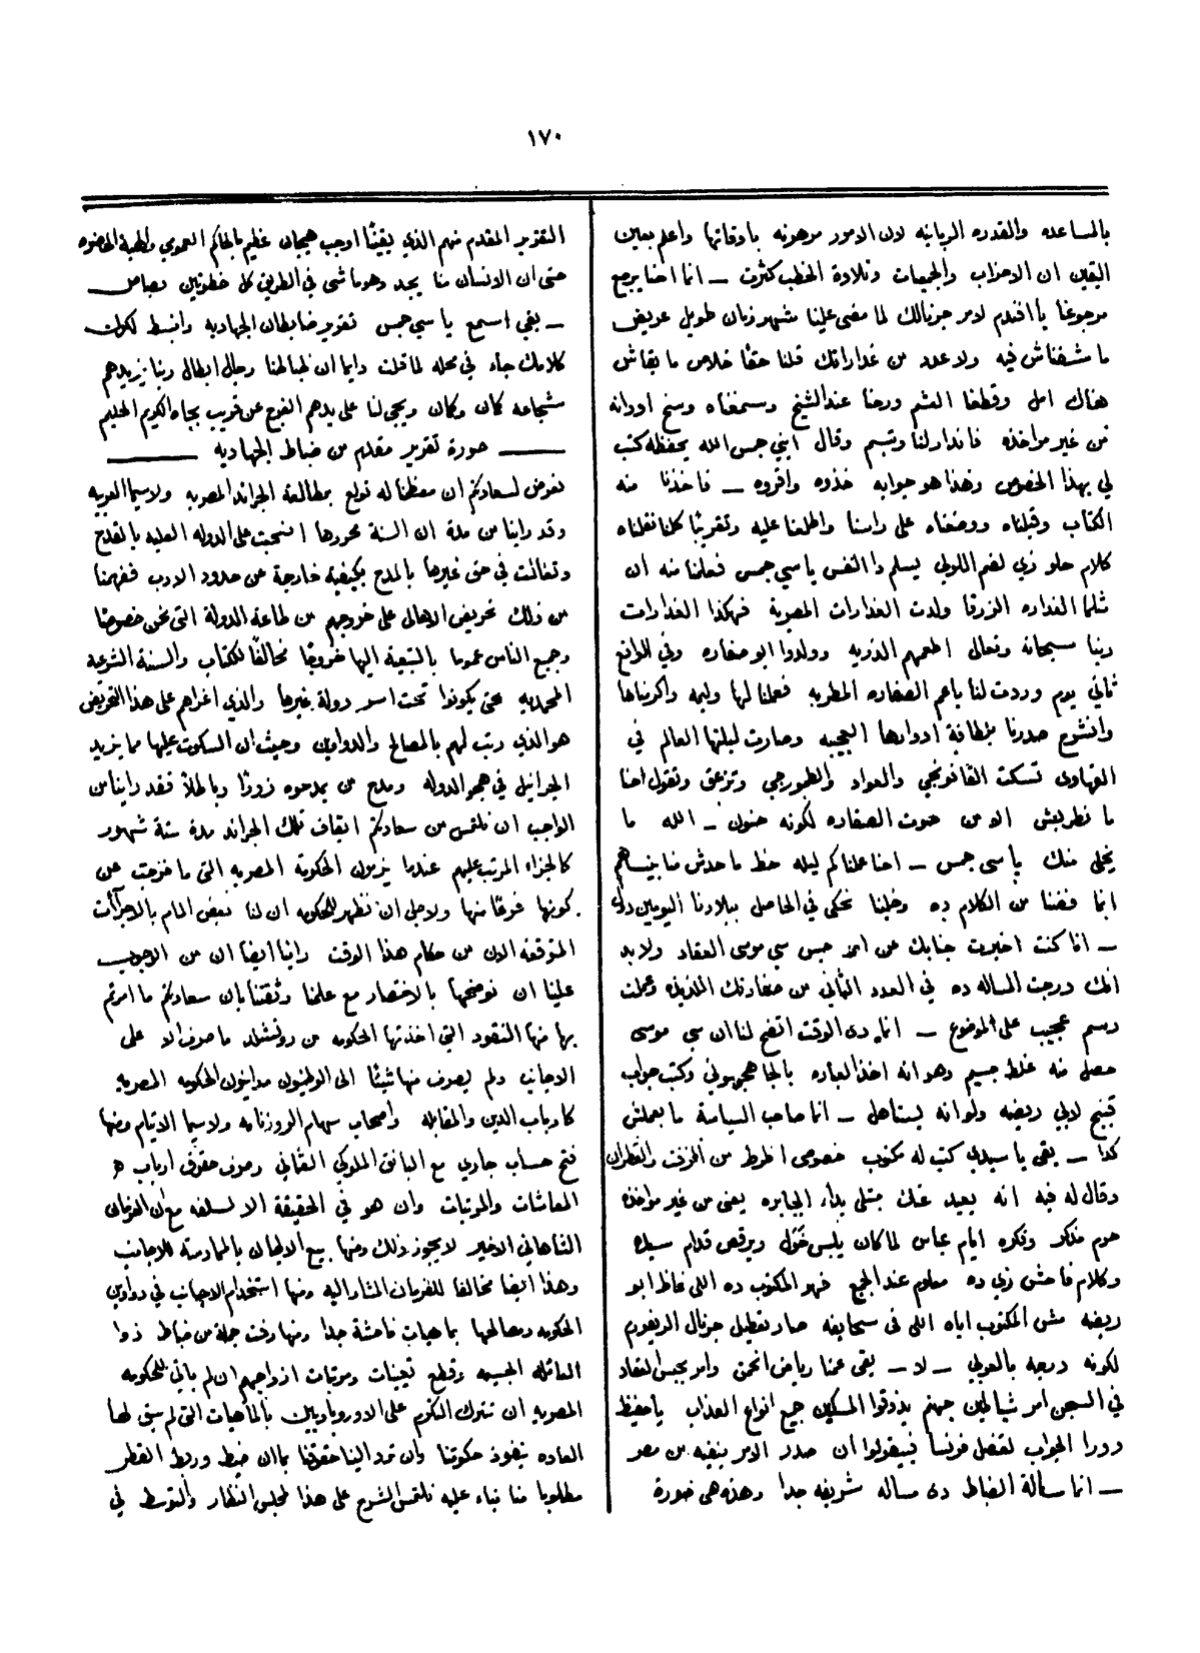 ١٧٠
بالمساعده والقدره الربانيه لان الامور مرهونه باوقاتها واعلم بعين
اليقين ان الاحزاب والجمعيات وتلاوة الخطب كثرت – انما احنا يرجع
مرجوعنا يا افندم لامر جرنالك لما مضى علينا شهر زمان طويل عريض
ما شفناش فيه ولا عدد من غداراتك قلنا حقا خلاص ما بقاش
هناك امل وقطعنا العشم ورحنا عند الشيخ وسمعناه وسخ ادوانه
من غير مواخذه فاندار لنا وتبسم وقال ابني جمس الله يحفظه كتب
لي بهذا الخصوص وهذا هو جوابه خذوه واقروه – فاخذنا منه
الكتاب وقبلناه ووضعناه على راسنا واطلعنا عليه وتقريبًا كلنا نقلناه
كلام حلو زي لضم اللولي يسلم دا النفس يا سي جمس فعلمنا منه ان
مثلما الغداره الزرقا ولدت الغدارات المصرية فهكذا الغدارات
ربنا سبحانه وتعالى الهمهم الذريه وولدوا ابو صفاره وفي الواقع
ثاني يوم وردت لنا ياعم الصفاره المطربه فعملنا لها وليمه واكرمناها
وانشرح صدرنا بلطافة ادوارها العجيبه وصارت ليلتها العالم في
القهاوى تسكت القانونجي والعواد والطمورجي وتزعق وتقول احنا
ما نطربش الا من صوت الصفاره لكونه حنون – الله ما
يخلي منك يا سى جمس – احنا عملنا كم ليله حظ ما حدش منا ينساهم
انما فضنا من الكلام ده وخلينا نحكي في الحاصل ببلادنا اليومين دول
– انا كنت اخبرت جنابك عن امر حبس سي موسى العقاد ولابد
انك درجت المساله ده في العدد الثاني من صفارتك اللذيذه وعملت
رسم عجيب على الموضوع – انما دى الوقت اتضح لنا ان سي موسى
حصل منه غلط جسيم وهو انه اخذ العباره بالجاهجهوني وكتب جواب
قبيح لابي ريضه ولو انه يستاهل – انما صاحب السياسة ما يعملش
كدا – بقى يا سيدي كتب له مكتوب خصوصى اظرط من الزفت والقطران
وقال له فيه انه بعيد عنك مبتلى بداء الجبابره يعني من غير مواخذه
حرم مذكر وفكره ايام عباس لما كان يلبس خَوَل ويرقص قدام سيده
وكلام فاحش زي ده معلوم عند الجميع فهو المكتوب ده اللى غاظ ابو
ريضه مش المكتوب اياه اللى في سحايفه صار تعطيل جرنال الريفورم
لكونه درجه بالعربي – لا – بقى عمنا رياض انحمق وامر بحبس العقاد
في السجن امر شيالين جهنم يذوقوا المسكين جميع انواع العذاب يا حفيظ
ودرا الجواب لقنصل فرنسا فبيقولوا ان صدر الامر بنفيه من مصر
– انما مسالة الضباط دى مساله شريفه جدا وهذه هى صورة
التقرير المقدم منهم الذي يقينًا اوجب هيجان عظيم بالحاكم العمومي والهيئة الحاضره
حتى ان الانسان منا يجد وهو ماشى في الطريق كل خطوتين بصاص
– بقي اسمع يا سي جمس تقرير ضابطان الجهاديه وانبسط لكون
كلامك جاء في محله لما قلت دايما ان ظباطنا رجال ابطال ربنا يزيدهم
شجاعه كان وكان ويجي لنا على يدهم الفرج عن قريب بجاه الكريم الحليم
صورة تقرير مقدم من ضباط الجهاديه
نعرض لسعادتكم ان معظمنا له تولع بمطالعة الجرائد المصريه ولاسيما العربيه
وقد راينا من مدة ان السنة محررها انسحبت على الدوله العليه بالقدح
وتغالت في حق غيرها بالمدح بكيفية خارجة عن حدود الادب ففهمنا
من ذلك تحريض الاهالى على خروجهم من طاعة الدولة التى نحن خصوصًا
وجميع الناس عموما بالتبعية اليها خروجًا مخالفًا للكتاب والسنة الشرعيه
المحمديه حتى يكونوا تحت اسر دولة غيرها والذي اغراهم على هذا التحريض
هو الذي رتب لهم بالمصالح والدواوين وحيث ان السكوت عليها مما يزيد
الجرانيل في هجو الدوله ومدح من يمدحوه زورًا وباطلاً فقد راينا من
الواجب ان نلتمس من سعادتكم ايقاف تلك الجرائد مدة ستة شهور
كالجزاء المرتب عليهم عندما يذمون الحكومه المصريه التى ما خرجت عن
كونها فرعًا منها ولاجل ان نظهر للحكومه ان لنا بعض المام بالاجراآت
المتوقعه الان من حكام هذا الوقت راينا ايضا ان من الاجوب
علينا ان نوضحها بالاختصار مع علمنا وثقتنا بان سعادتكم ما امرتم
بها منها النقود التي اخذتها الحكومه من روتشلد ما صرف الا على
الاجانب ولم يصرف منها شيئًا الى الوطنيون مداينون الحكومه المصريه
كارباب الدين والمقابله واصحاب سهام الروزنامه ولاسيما الايتام ومنها
فتح حساب جاري مع البانق الملوكي العثماني وصرف حقوق ارباب
المعاشات والمرتبات وان هو في الحقيقة الا لسلفه مع ان الفرمان
الشاهاني الاخير لا يجوز ذلك ومنها بيع الاطيان بالممارسه للاجانب
وهذا ايضا مخالفا للفرمان المشار اليه ومنها استخدام الاجانب في دواوين
الحكومه ومصالحها بماهيات فاحشة جدا ومنها رفت جملة من ضباط ذوا
العائله الجسيمه وقطع تعيينات ومرتبات ازواجهم ان لم ياتي للحكومه
المصريه ان تترك التكرم على الاوروباويين بالماهيات التى لم سبق لها
العاده بنفوذ حكومتنا وان ترد الينا حقوقنا بما ان ضبط وربط القطر
مطلوبا منا فبناء عليه نلتمس الشرح على هذا لمجلس النظار والتوسط في